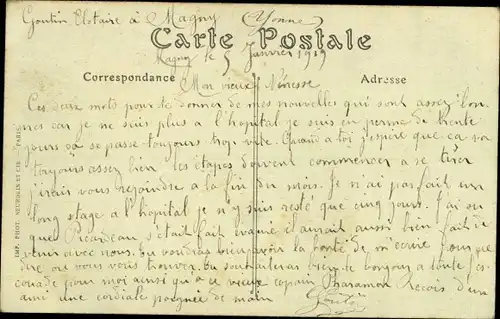 Goutin Elotaire à Magny Yonne
Carte Postale
Magny le 5 Janvier 1919
Correspondance Adresse
Mon vieux Nénesse
Ces deux mots pour te donner de mes nouvelles qui sont assez bon
nes car je ne suis plus a l'hopital je suis en perme de trente
jours ça se passe toujours trop vite. Quand a toi j'espère que ca va
toujours assez bien les étapes doivent commencer a se tirer
j'irais vous rejoindre a la fin du mois. Je n'ai pas fait un
long stage a l'hopital je n'y suis resté que cinq jours. J'ai su
que s'était fait évacué il aurait aussi bien fait de
venir avec nous. Tu voudras bien avoir la bonté de m'écrire pour me
dire ou vous vous trouver. Tu souhaiteras bien le bonjour a toute l'es
couade pour moi ainsi qu'a ce vieux copain Pharamon Recois d'un
ami une cordiale poignée de main
IMP. PHOT. NEURDEIN ET CIE. — PARIS.